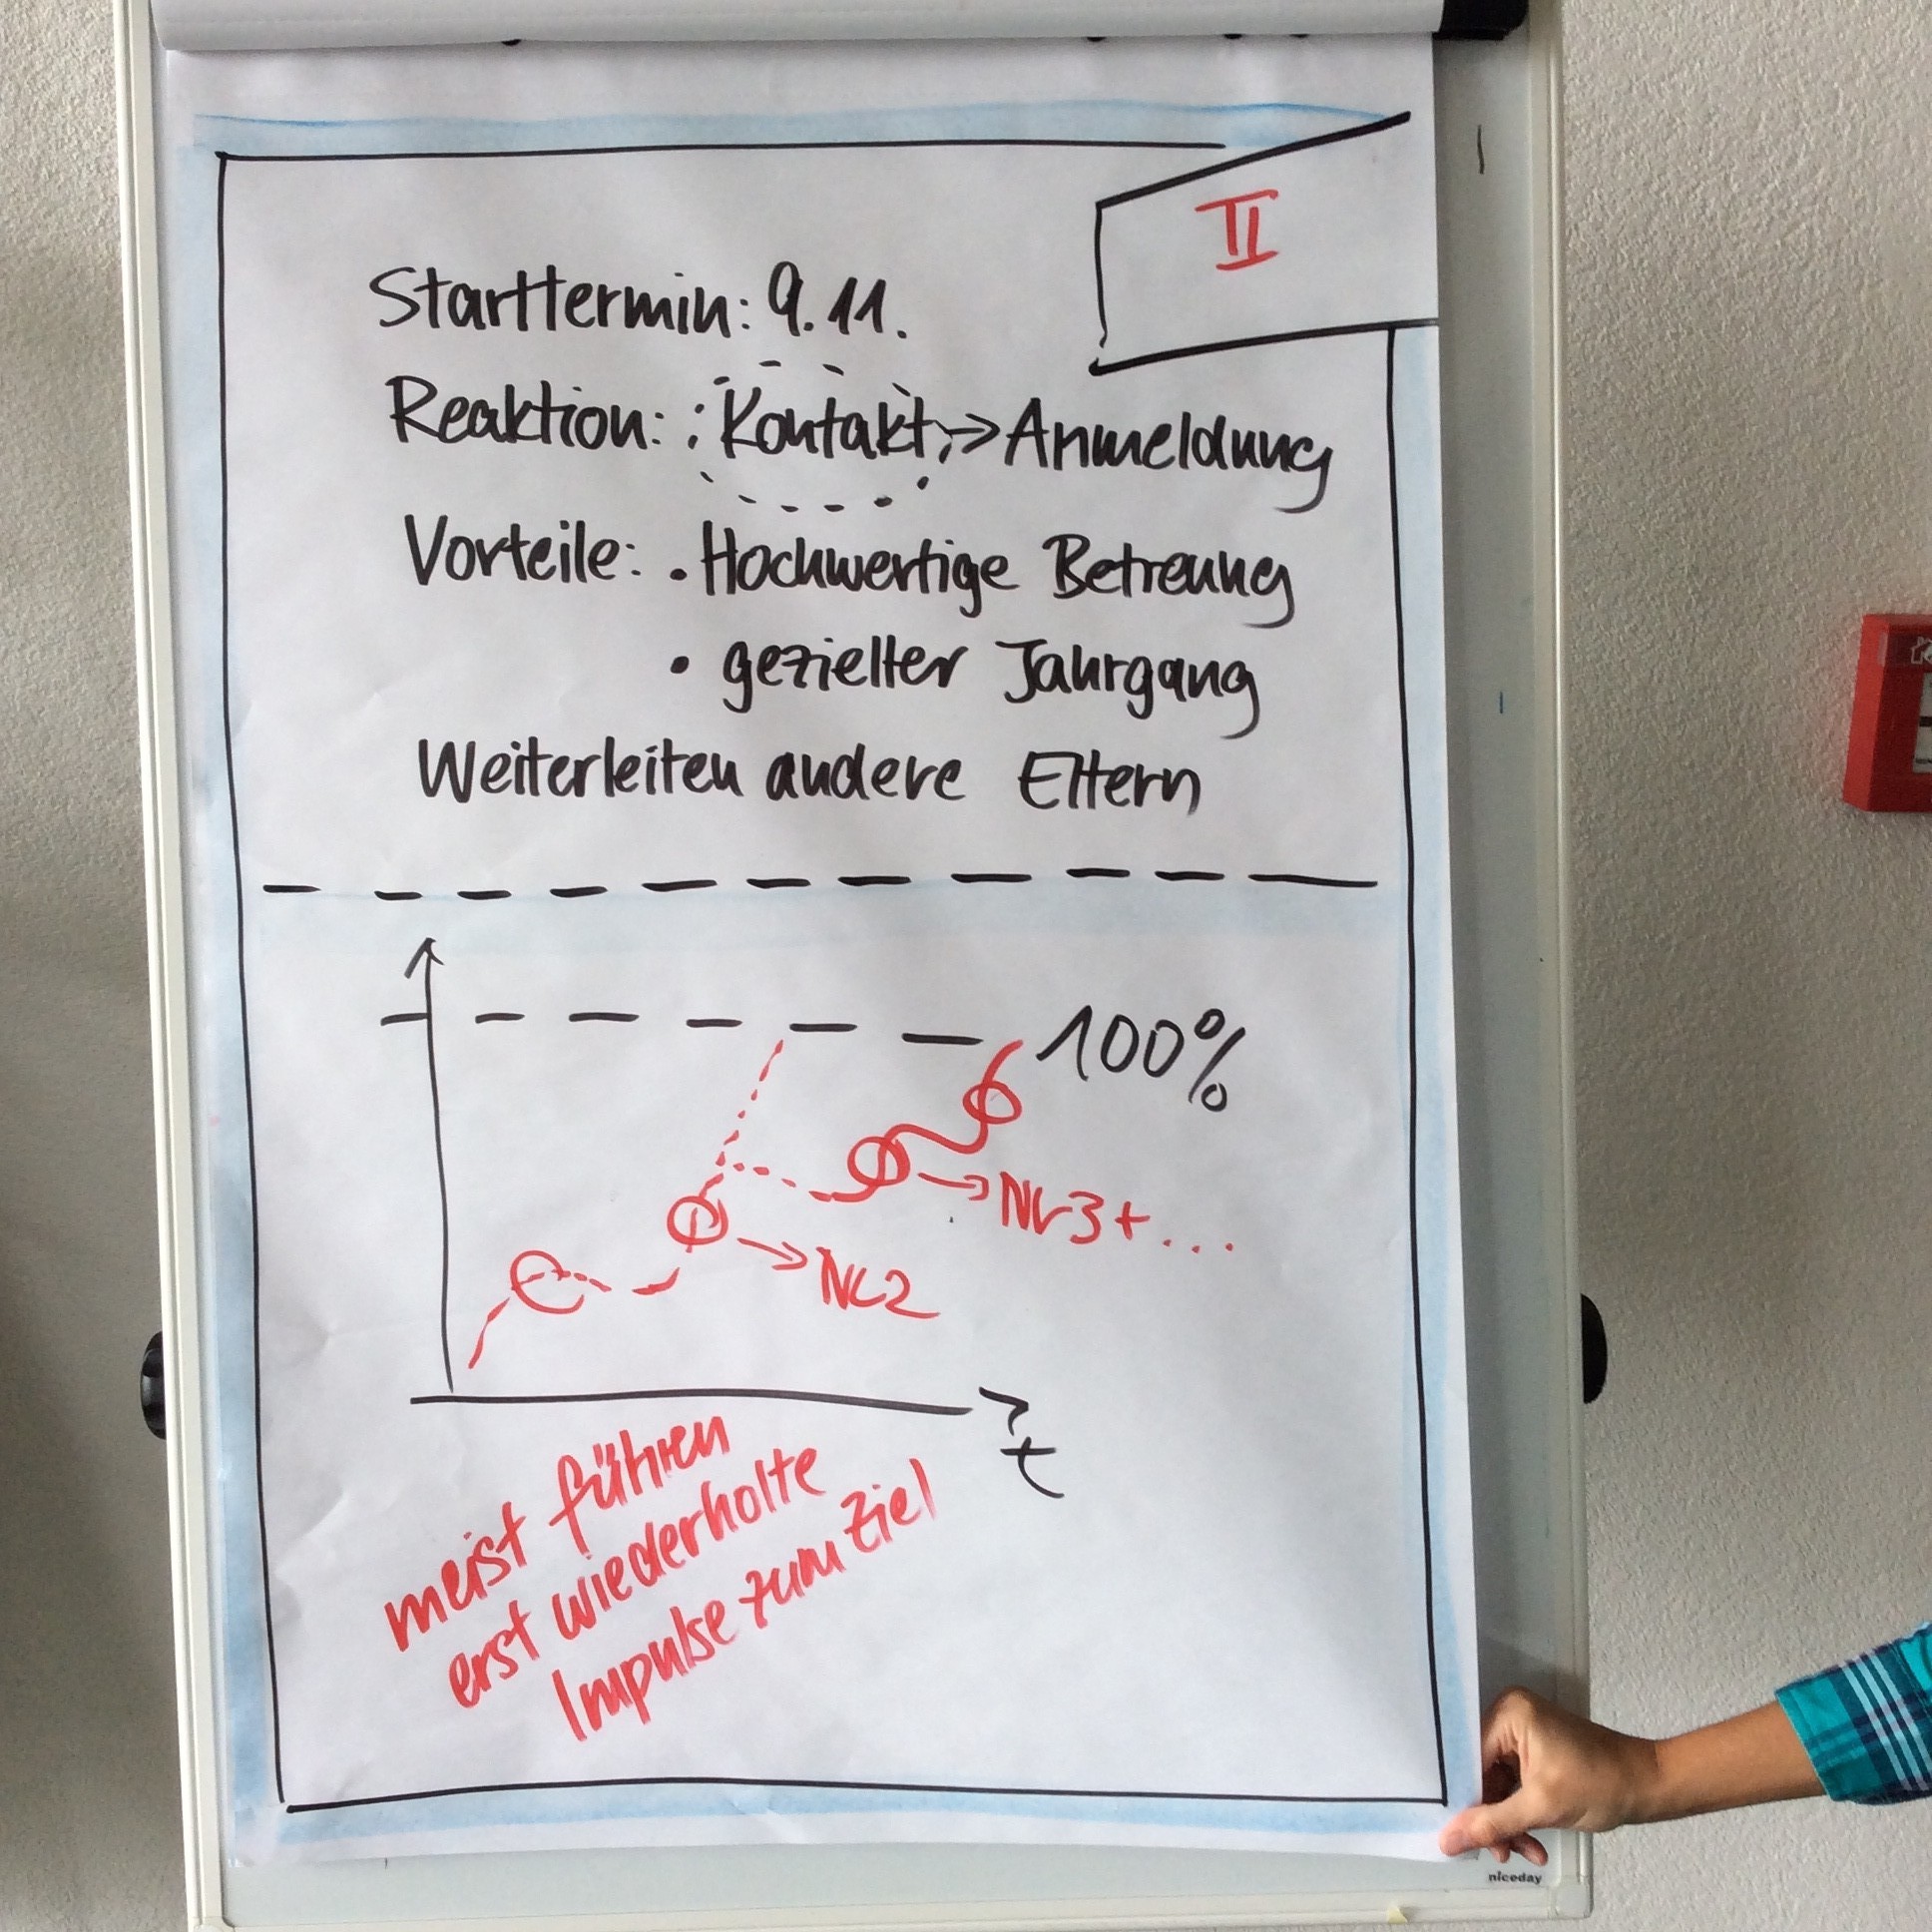 II
Starttermin: 9.11.
Reaktion: Kontakt → Anmeldung
Vorteile: • Hochwertige Betreuung
• gezielter Jahrgang
Weiterleiten andere Eltern
100%
→ NL3+...
→ NL2
t
meist führen
erst wiederholte
Impulse zum Ziel
niceday